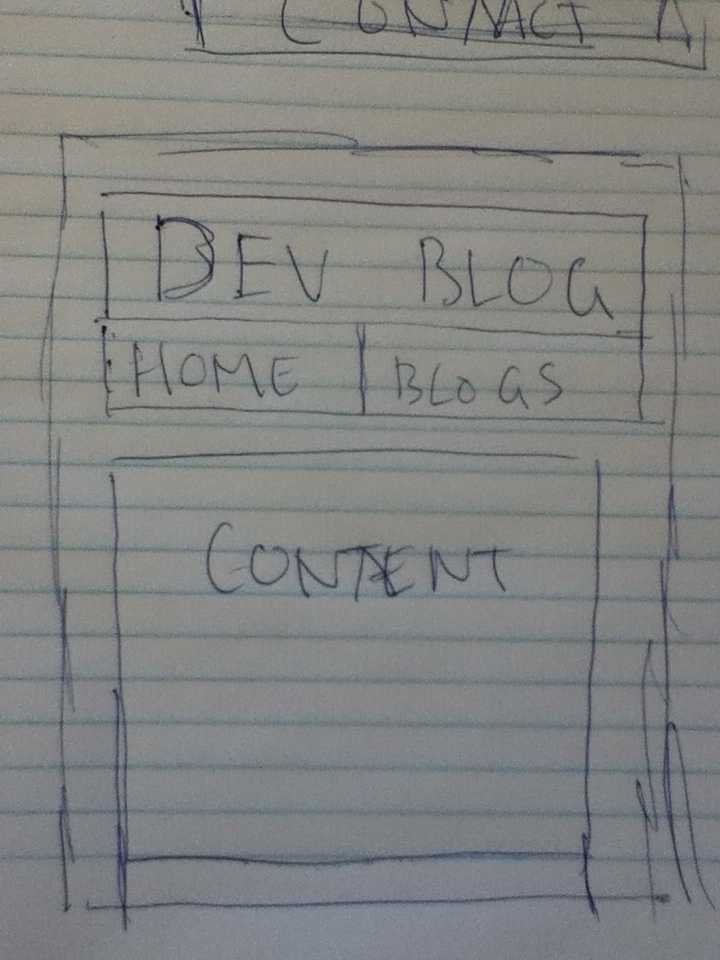 CONTACT
DEV BLOG
HOME BLOGS
CONTENT